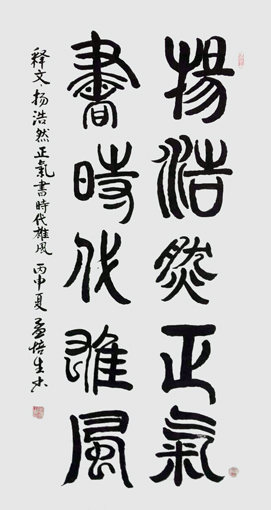 揚浩然正氣
書時代雄風
释文:扬浩然正氣書時代雄风 丙申夏 孟悟生书